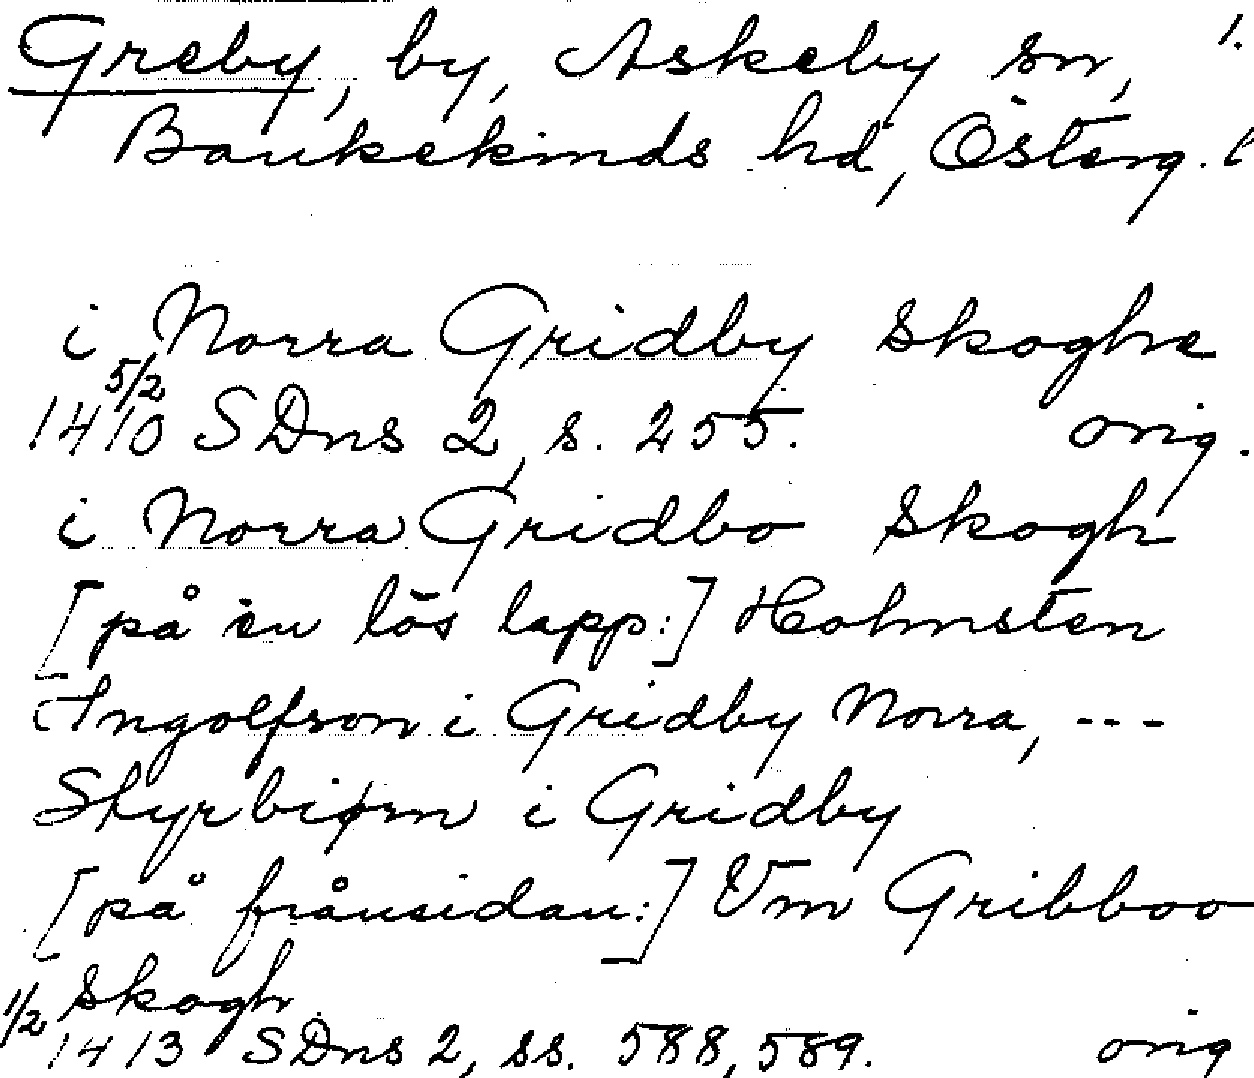 Greby, by, Askeby sn, 1.
Bankekinds hd, Österg. l
i Norra Gridby skoghe
5/2
1410 SDns 2, s. 255. orig.
i Norra Gridbo skogh
[på en lös lapp:] Holmsten
Ingolfson i Gridby Norra, ---
Styrbiørn i Gridby
[på frånsidan:] Vm Gribboo
skogh
1/2 1413 SDns 2, ss. 588, 589. orig